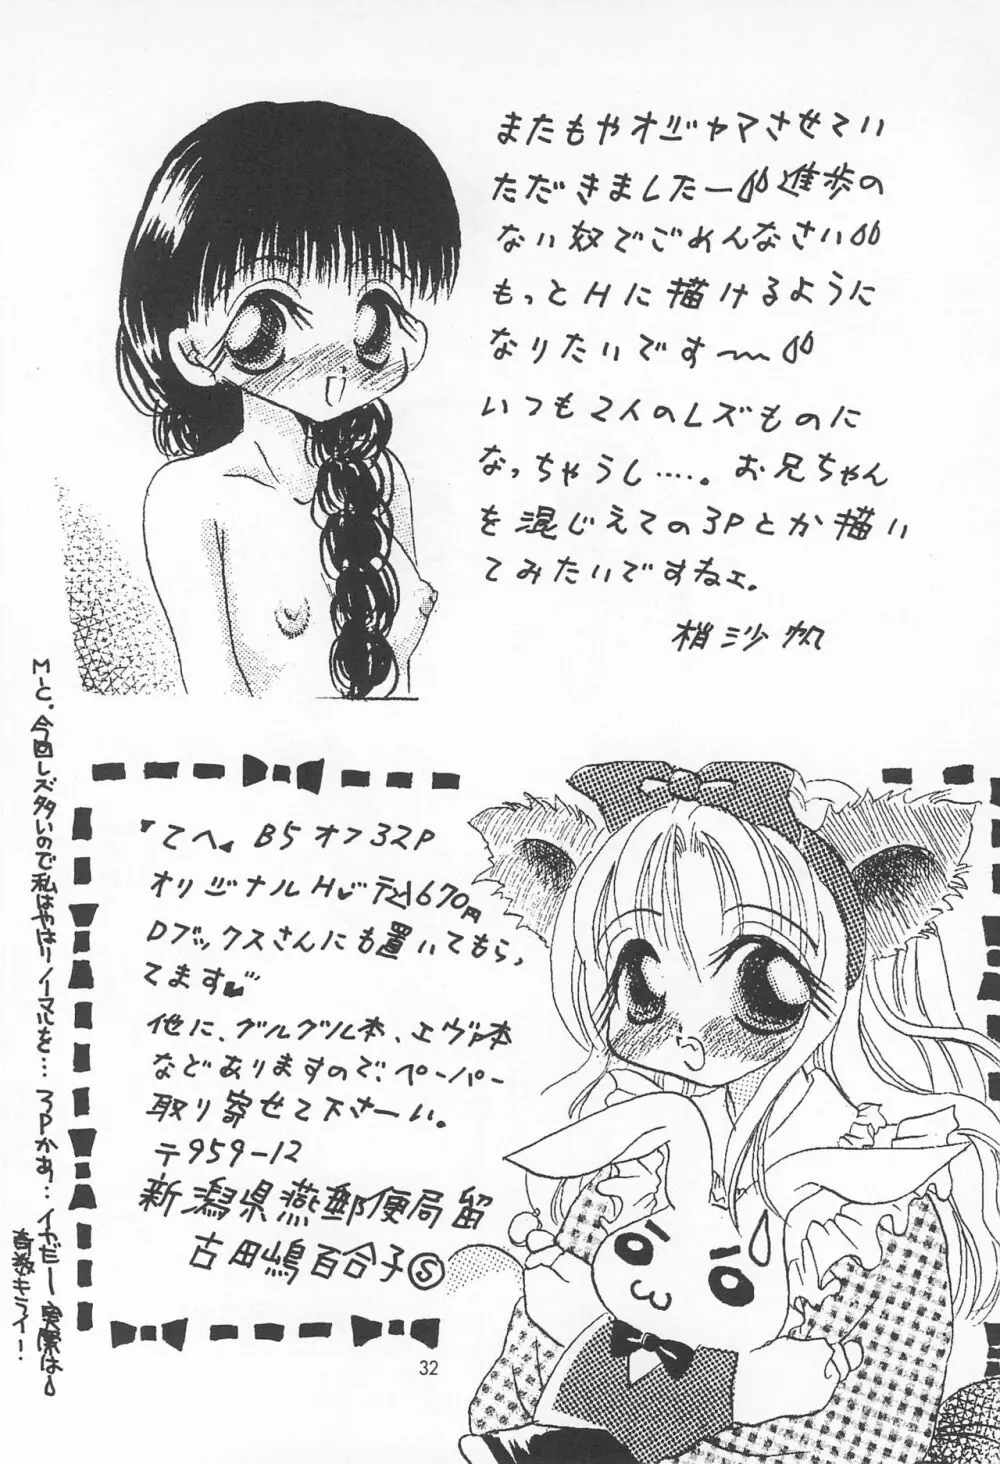 またもやオジャマさせてい
ただきましたー進歩の
ない奴でごめんなさい
もっとHに描けるように
なりたいです〜
いつも2人のレズものに
なっちゃうし……。お兄ちゃん
を混じえての3Pとか描い
てみたいですねェ。
梢沙帆
M-C。今回レズ多いので私はやはりノーマルを…3Pかあ…イヤだー実際は
奇数キライ!
てへ。B5オフ32P
オリジナルH 〒込670円
Dブックスさんにも置いてもらっ
てます
他に、グルグル本、エヴァ本
などありますので、ペーパー
取り寄せて下さーい。
〒959-12
新潟県燕郵便局留
古田嶋百合子Ⓢ
32